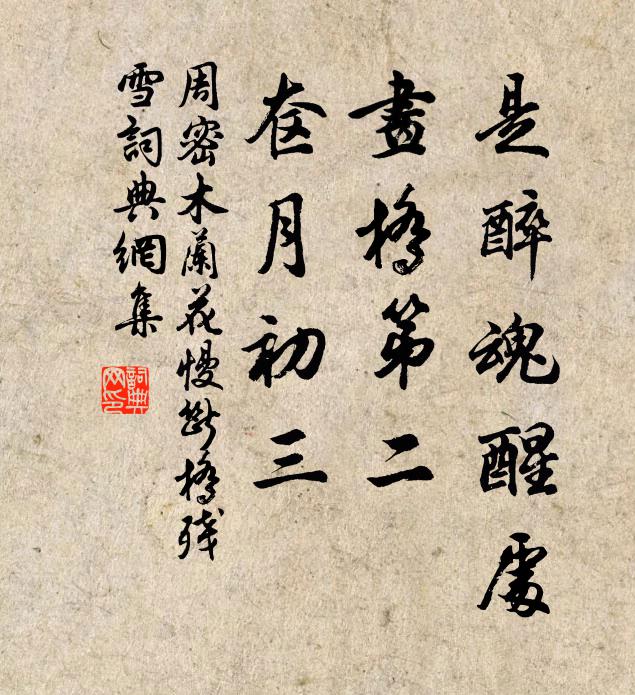 是醉魂醒處
畫橋第二
奁月初三
周密木蘭花慢斷橋殘
雪詞典網集
詞典
网印